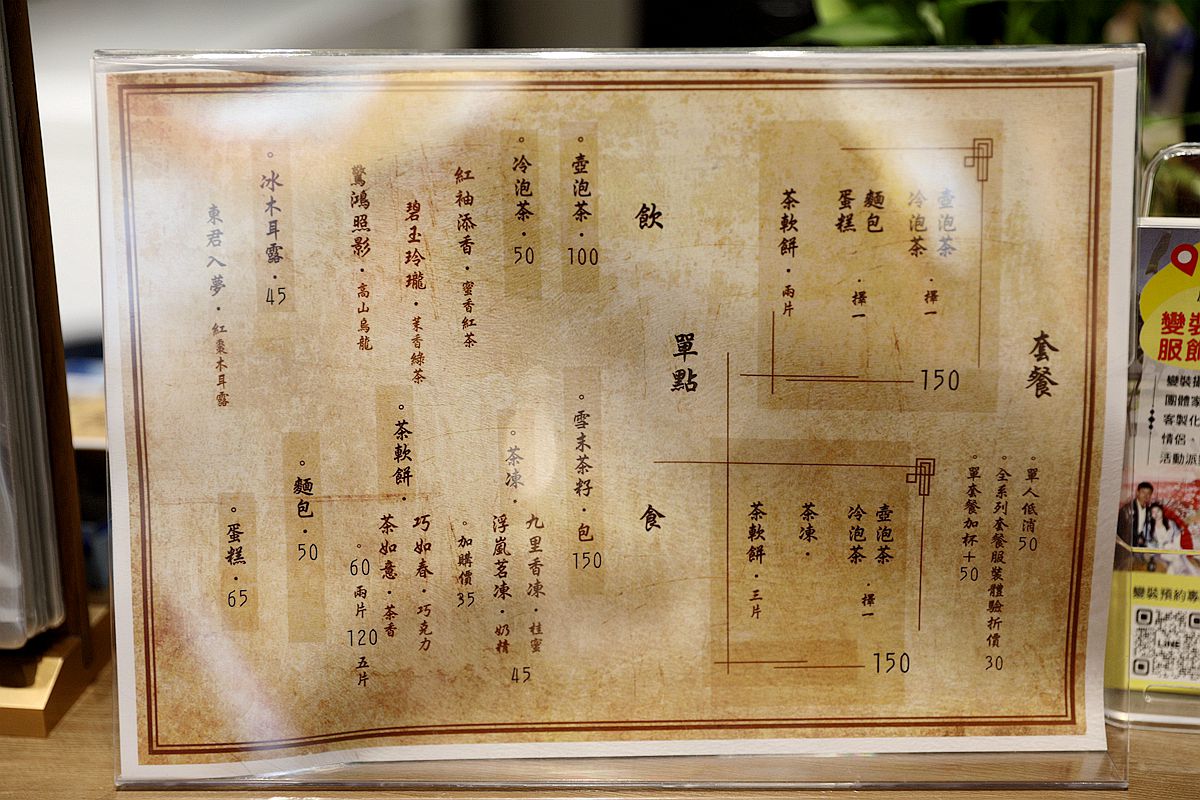 套餐
壺泡茶
冷泡茶・擇一
麵包
蛋糕・擇一
茶軟餅・兩片
150
。單人低消50
。全系列套餐服裝體驗折價30
。單套餐加杯+50
壺泡茶
冷泡茶・擇一
茶凍・
茶軟餅・三片
150
單點
飲
。壺泡茶・100
。冷泡茶・50
紅袖添香・蜜香紅茶
碧玉玲瓏・茉香綠茶
驚鴻照影・高山烏龍
。冰木耳露・45
東君入夢・紅棗木耳露
食
。雪末茶籽・包150
。茶凍・
九里香凍・桂蜜
浮嵐茗凍・奶精
45
。加購價35
。茶軟餅・
巧如春・巧克力
茶如意・茶香
。60兩片120五片
。麵包・50
。蛋糕・65
變裝
服飾
變裝攝
團體家
客製化
情侶、
活動派
變裝預約專
LINE